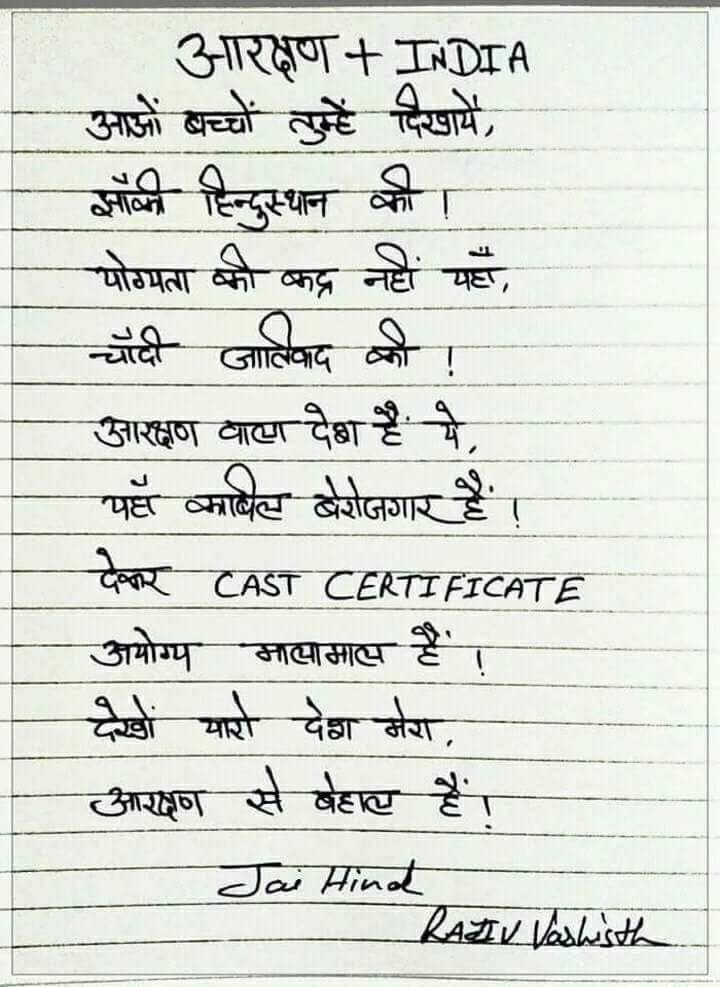 आरक्षण + INDIA
आओं बच्चों तुम्हें दिखायें,
झाँकी हिन्दुस्थान की।
योग्यता की कद्र नहीं यहाँ,
चाँदी जातिवाद की!
आरक्षण वाला देश हैं ये,
यहाँ काबिल बेरोजगार हैं!
देकर CAST CERTIFICATE
अयोग्य मालामाल हैं!
देखों यारो देश मेरा,
आरक्षण से बेहाल हैं!
Jai Hind
RAJIV Vashisth